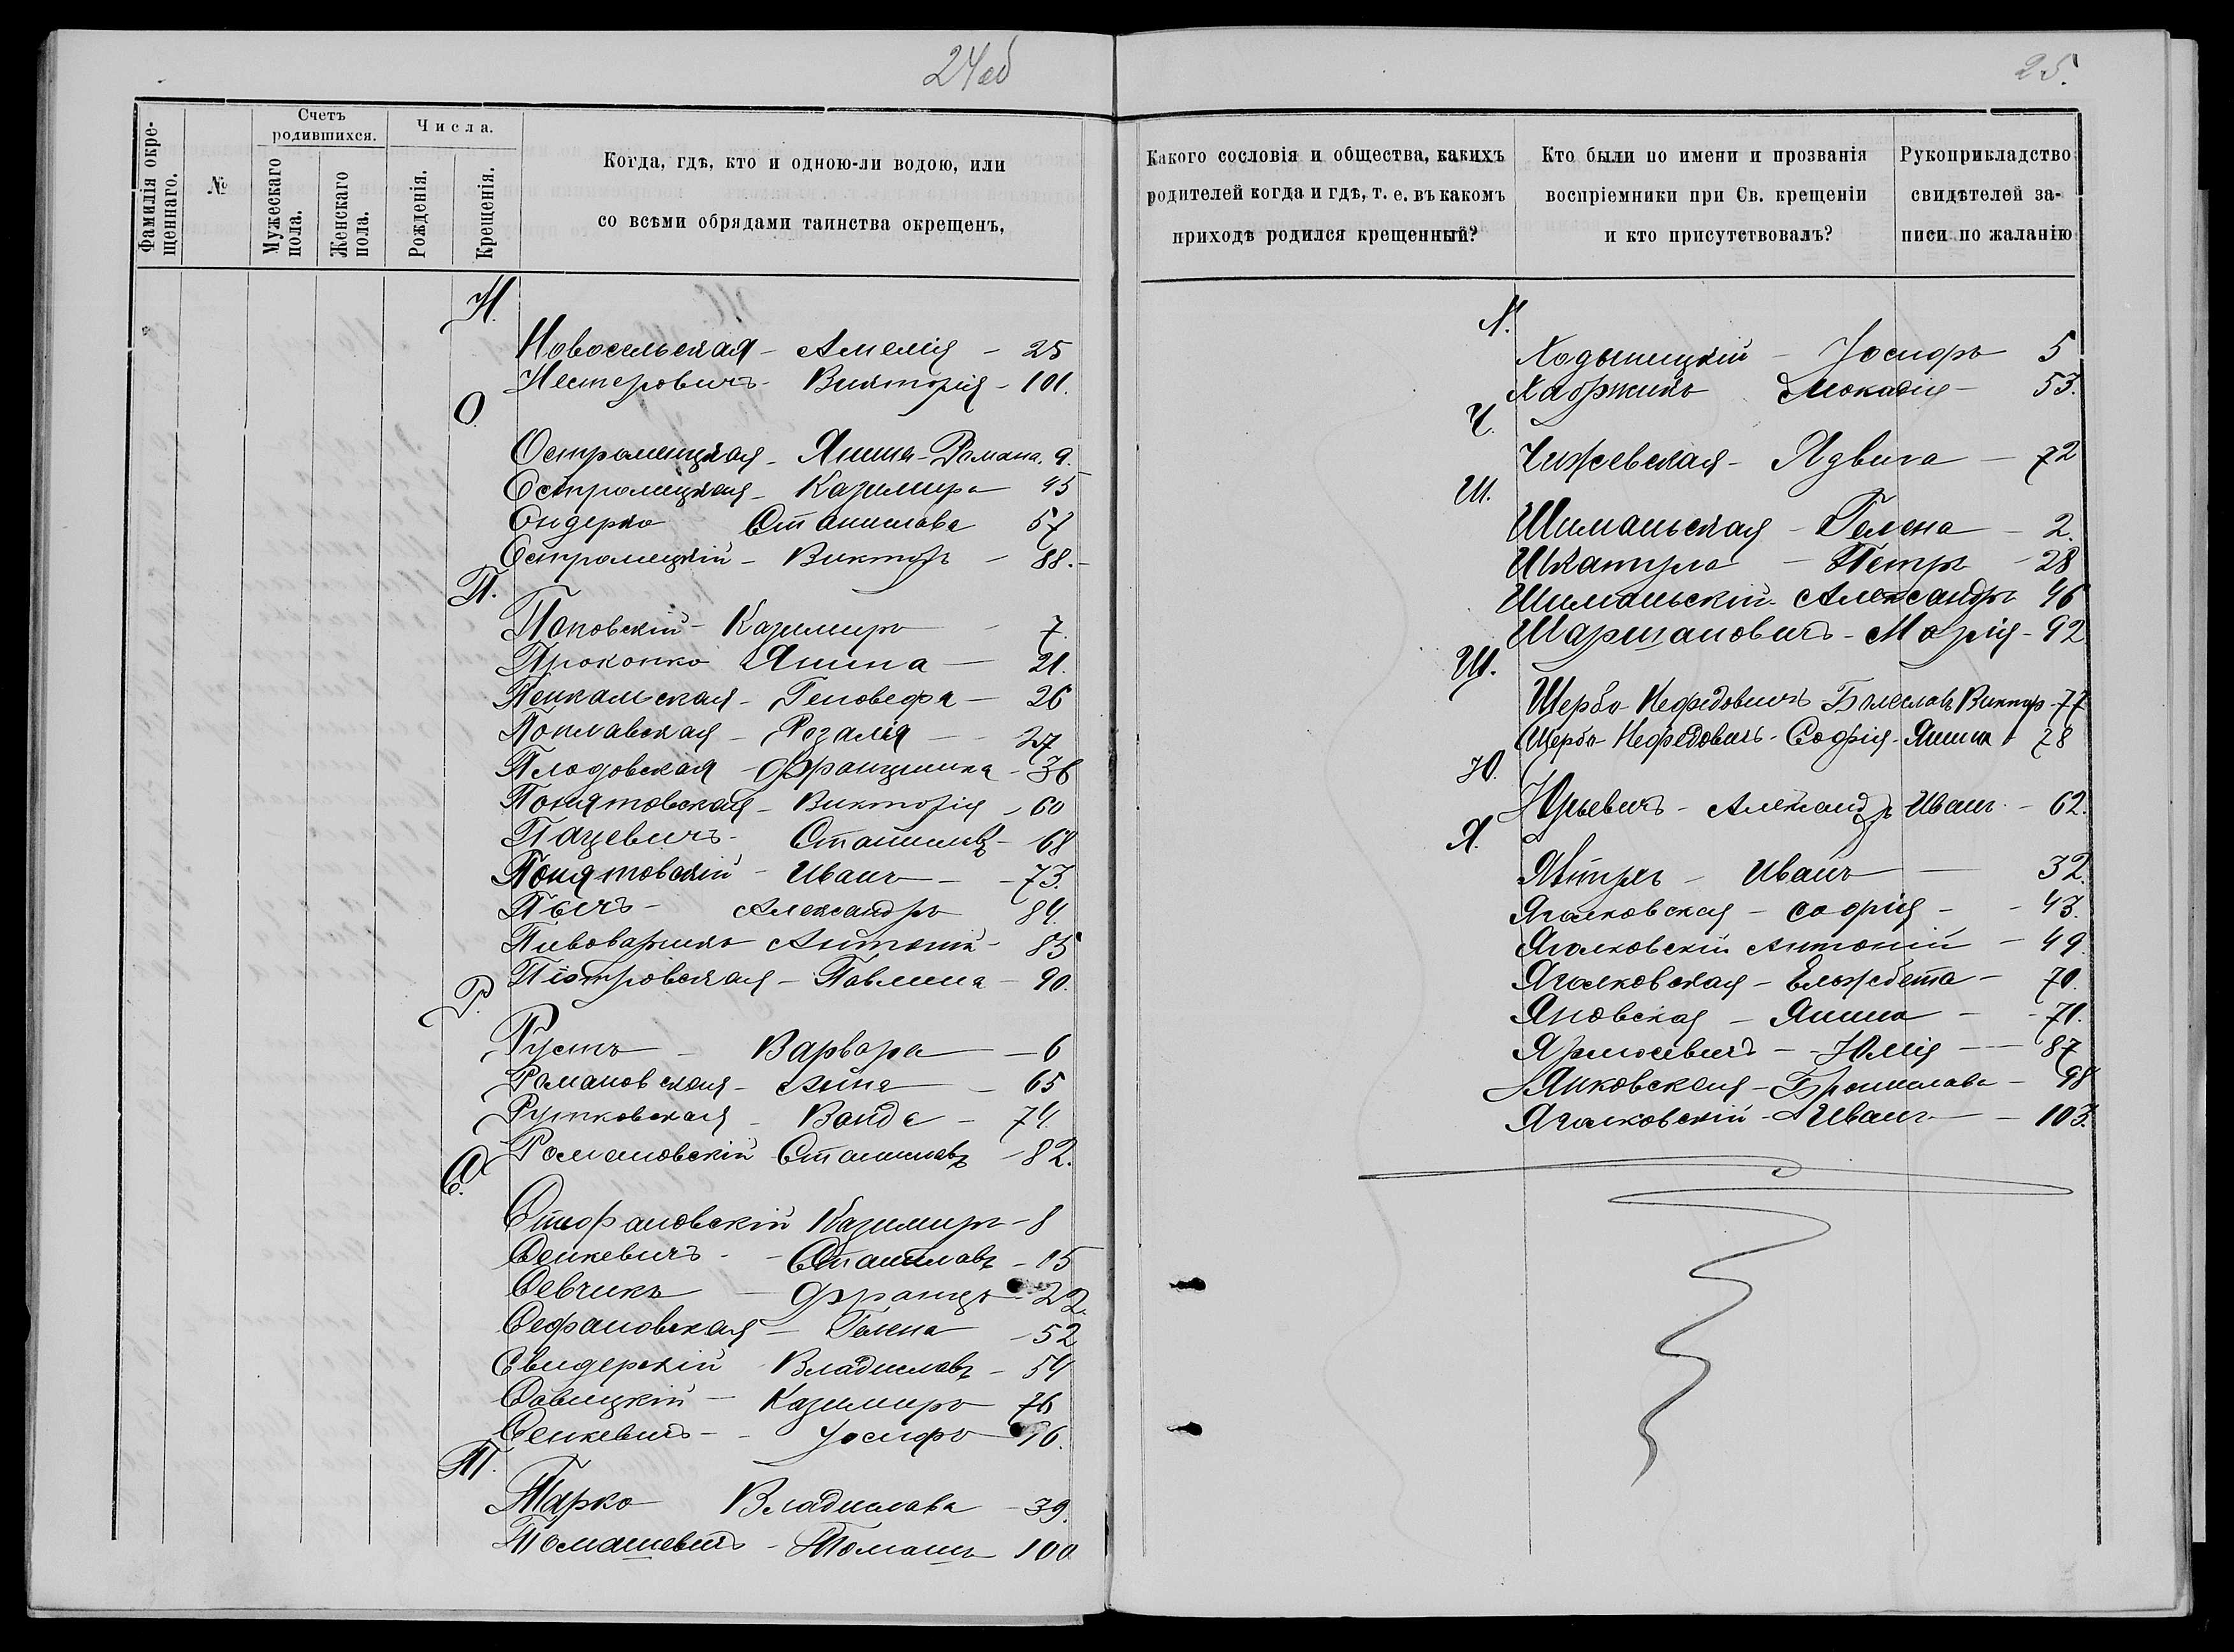 24об
Фамилія окре-
щеннаго.
№
Счетъ
родившихся.
Мужескаго
пола.
Женскаго
пола.
Числа.
Рожденія.
Крещенія.
Когда, гдѣ, кто и одною-ли водою, или
со всѣми обрядами таинства окрещенъ,
Н.
Новосельская - Амелія - 25
Нестеровичъ - Викторія - 101.
О.
Остромецкая - Янина-Романа. 9.
Остромецкая - Казимира 45
Ондерко Станислава 57
Остромецкій - Викторъ - 88.-
П.
Поповскій - Казимиръ - 7.
Прокопко Янина - 21.
Пенкальская - Геновефа - 26
Поплавская - Розалія - 27
Плодовская - Францишка - 36
Понятовская - Викторія - 60
Пацевичъ - Станиславъ - 68
Понятовскій - Иванъ - 73.
Пычъ - Александръ 84.
Пивоварчикъ Антоній - 85
Піотровская - Павлина - 90.
Р.
Рустъ - Варвара - 6
Романовская - Анна - 65
Рутковская - Ванда - 74.
Романовскій Станиславъ - 82.
С.
Стефановскій Казимиръ - 8
Сенкевичъ - Станиславъ - 15
Севчикъ - Францъ - 22.
Сефановская - Гелена - 52
Свидерскій Владиславъ - 54
Савицкій - Казимиръ 76
Сенкевичъ - Іосифъ - 96.
Т.
Тарко Владислава - 39.
Томашевичъ - Томашъ 100
25.
Какого сословія и общества, какихъ
родителей когда и гдѣ, т. е. въ какомъ
приходѣ родился крещенный?
Кто были по имени и прозванія
воспріемники при Св. крещеніи
и кто присутствовалъ?
Рукоприкладство
свидѣтелей за-
писи по жаланію
Х.
Ходыницкій - Іосифъ 5
Хабржикъ Леокадія - 53.
Ч.
Чижевская - Ядвига - 72
Ш.
Шиманьская - Гелена - 2.
Шкатула - Петръ - 28
Шиманьскій - Александръ 46
Шаршановичъ - Марія - 92
Щ.
Щербо-Нефедовичъ Болеславъ Викторъ - 77
Щербо-Нефедовичъ - Софія - Янина 78
Ю.
Юрьевичъ - Александръ Иванъ - 62.
Я.
Иванъ - 32.
Ягалковская - Софія - 43.
Ягалковскій Антоній - 49
Ягалковская - Ельжбета - 70.
Яновская - Янина - 71.
Ярмосевичъ - Юлія - 87
Янковская - Бронислава - 98
Ягалковскій - Иванъ - 103.